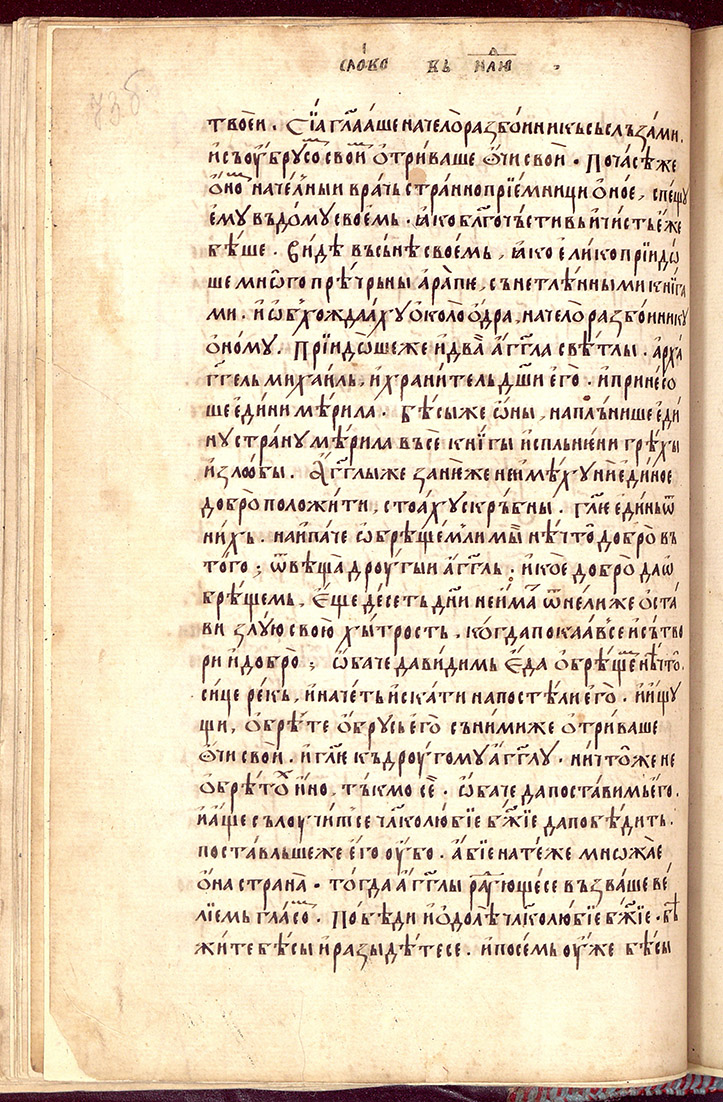 сло́во въ нлю̑
твоеи҆. Сїа҆ гл҃аа́ше наче́лоразбо́иникь сь слъза́ми.
и҆ съ ѹ҆́брусо свои҆м ѻ҆трива́ше ѻ҆́чи свои҆. По ча́сѣ же
ѻ҆но наче́лныи вра́чь страннопрїе́мници ѻ҆но́е, спе́щу
е҆мꙋ въ до́мꙋ свое́мь. ꙗ҆́ко бл҃гоч́ьстивь и҆ чи́сть е҆́же
бѣ́ше. ви́дѣ въ сьнѣ свое́мь, ꙗ҆́ко е҆ли́ко прїидо́
ше мно́го прѣ́чрьны а҆ра́пїе, съ нетлѣ́нными кни́га
ми. и҆ ѡ҆бхожда́ахꙋ ѻ҆́коло ѻ҆дра, наче́лоразбо́иникꙋ
ѻ҆но́мꙋ. Прїидо́ше же и҆ два̀ а҆́гг҃ла свѣ́тлы. а҆рха́
гг҃ель миха́иль, и҆ храни́тель дш҃и е҆го̀. и҆ прине́со
ше е҆ди́ни мѣ́рила. бѣ́сы же ѻ҆́ны, напль́нише е҆ди́
нꙋ стра́нꙋ мѣ́рила въсѐ кни́гы и҆спльне́ни грѣ́хы
и҆ зло́бы. А҆́гг҃лы же зане́же не и҆мѣ́хꙋ ни е҆ди́ное
добро̀ положи́ти, стоа́хꙋ скръ́бны. гл҃е е҆ди́нь ѿ
ни́хь. на и҆па́че ѡ҆брѣ́щемь ли мы̀ нѣ́что добро̀ въ
то́го; ѿвѣща̀ дроу́гыи а҆́гг҃ль; и҆ ко́е добро̀ да ѡ҆
брѣ́щемь, Е҆́ще де́сеть дн҃и не и҆ма ѿне́лиже ѡ҆ста́
ви злꙋ́ю свою̀ хы́трость, когда пока́а все и҆ сътво
ри и҆ добро̀; ѻ҆ба́че да ви́димь е҆да̀ ѻ҆брѣ́щем нѣ́что.
си́це ре́кь, и҆ наче́ть и҆ска́ти на посте́ли е҆го̀. и҆ и҆́щꙋ
щи, ѻ҆брѣ́те ѻ҆́брусь е҆го̀ съ ни́миже ѻ҆трива́ше
ѻ҆́чи свои҆. и҆ гл҃е къ дроу́гомꙋ а҆́гг҃лꙋ. ничто́же не
ѻ҆брѣ́тох и҆́но, тъ́кмо се̏. ѻ҆ба́че да поста́вимь е҆го̀.
и҆ а҆́ще сълоучи́т се чл҃колю́бїе бж҃їе да побѣ́дить.
поста́вльше же е҆го̀ оу҆́бо. а҆́бїе натеже мно́жае
ѻ҆на страна̀. тогда̀ а҆́гг҃лы ра́дующе се възва́ше ве́
лїемь гла́со. Побѣ́ди и҆ ѻ҆долѣ̀ чл҃колю́бїе бж҃їе. бѣ́
жите бѣ́сы и҆ разыдѣ́те се. и҆ посе́мь оу҆́же бѣ́сы